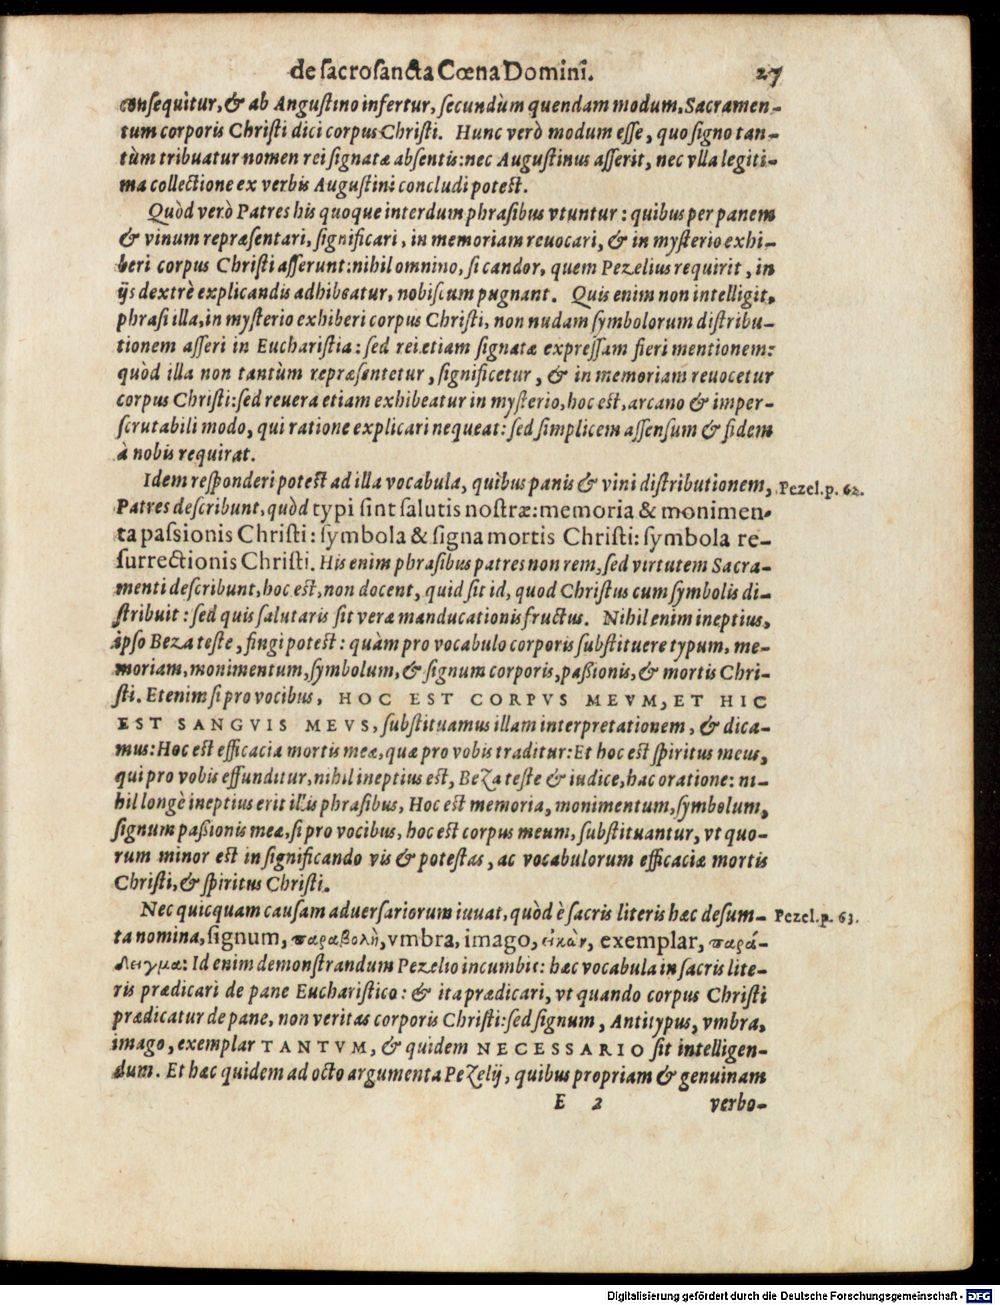 de sacrosancta Cœna Domini. 27
consequitur, & ab Angustino infertur, secundùm quendam modum. Sacramen-
tum corporis Christi dici corpus Christi. Hunc verò modum esse, quo signo tan-
tùm tribuatur nomen rei signatæ absentis: nec Augustinus asserit, nec vlla legiti-
ma collectione ex verbis Augustini concludi potest.
Quòd verò Patres his quoque interdum phrasibus vtuntur: quibus per panem
& vinum repræsentari, significari, in memoriam reuocari, & in mysterio exhi-
beri corpus Christi asserunt: nihil omnino, si candor, quem Pezelius requirit, in
ijs dextrè explicandis adhibeatur, nobiscum pugnant. Quis enim non intelligit,
phrasi illa, in mysterio exhiberi corpus Christi, non nudam symbolorum distribu-
tionem asseri in Eucharistia: sed rei etiam signatæ expressam fieri mentionem:
quòd illa non tantùm repræsentetur, significetur, & in memoriam reuocetur
corpus Christi: sed reuera etiam exhibeatur in mysterio, hoc est, arcano & imper-
scrutabili modo, qui ratione explicari nequeat: sed simplicem assensum & fidem
à nobis requirat.
Idem responderi potest ad illa vocabula, quibus panis & vini distributionem, Pezel. p. 62.
Patres describunt, quòd typi sint salutis nostræ: memoria & monimen-
ta passionis Christi: symbola & signa mortis Christi: symbola re-
surrectionis Christi. His enim phrasibus patres non rem, sed virtutem Sacra-
menti describunt, hoc est, non docent, quid sit id, quod Christus cum symbolis di-
stribuit: sed quis salutaris sit veræ manducationis fructus. Nihil enim ineptius,
ipso Beza teste, fingi potest: quàm pro vocabulo corporis substituere typum, me-
moriam, monimentum, symbolum, & signum corporis, passionis, & mortis Chri-
sti. Etenim si pro vocibus, HOC EST CORPVS MEVM, ET HIC
EST SANGVIS MEVS, substituamus illam interpretationem, & dica-
mus: Hoc est efficacia mortis meæ, quæ pro vobis traditur: Et hoc est spiritus meus,
qui pro vobis effunditur, nihil ineptius est, Beza teste & iudice, hac oratione: ni-
hil longè ineptius erit illis phrasibus, Hoc est memoria, monimentum, symbolum,
signum passionis meæ, si pro vocibus, hoc est corpus meum, substituantur, vt quo-
rum minor est in significando vis & potestas, ac vocabulorum efficaciæ mortis
Christi, & spiritus Christi.
Nec quicquam causam aduersariorum iuuat, quòd è sacris literis hæc desum- Pezel. p. 63.
ta nomina, signum, παραβολὴ, vmbra, imago, εἰκὼν, exemplar, παρά-
δειγμα: Id enim demonstrandum Pezelio incumbit: hæc vocabula in sacris lite-
ris prædicari de pane Eucharistico: & ita prædicari, vt quando corpus Christi
prædicatur de pane, non veritas corporis Christi: sed signum, Antitypus, vmbra,
imago, exemplar TANTVM, & quidem NECESSARIO sit intelligen-
dum. Et hæc quidem ad octo argumenta Pezelij, quibus propriam & genuinam
E 2 verbo-
Digitalisierung gefördert durch die Deutsche Forschungsgemeinschaft - DFG